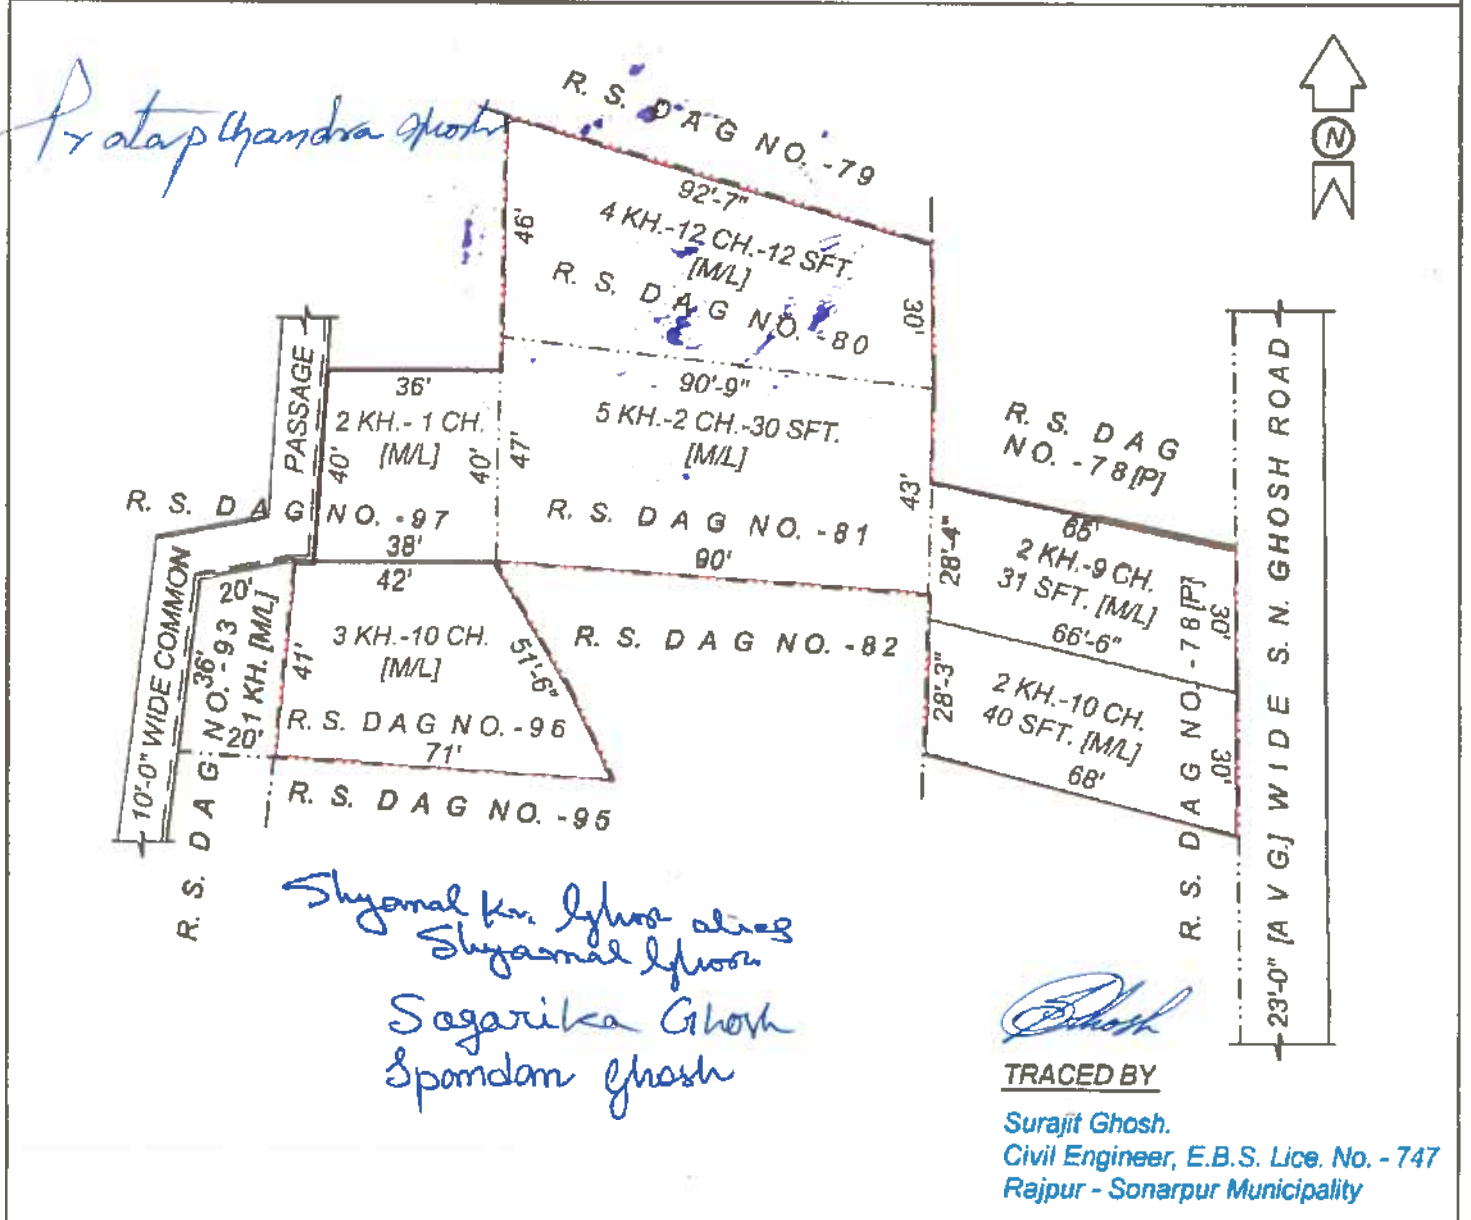 Pratap Chandra Ghosh
R. S. DAG NO. -79
92'-7"
46'
4 KH.-12 CH.-12 SFT.
[M/L]
30'
R. S. DAG NO. -80
90'-9"
5 KH.-2 CH.-30 SFT.
[M/L]
47'
43'
R. S. DAG NO. -81
90'
36'
2 KH.- 1 CH.
[M/L]
40'
40'
R. S. DAG NO. -97
38'
10'-0" WIDE COMMON PASSAGE
42'
3 KH.-10 CH.
[M/L]
41'
51'-6"
R. S. DAG NO. -96
71'
20'
36'
1 KH. [M/L]
20'
R. S. DAG NO. -93
R. S. DAG NO. -95
R. S. DAG NO. -82
R. S. DAG
NO. -78[P]
28'-4"
2 KH.-9 CH.
31 SFT. [M/L]
30'
66'-6"
28'-3"
2 KH.-10 CH.
40 SFT. [M/L]
30'
68'
R. S. DAG NO. -78[P]
23'-0" [AVG.] WIDE S. N. GHOSH ROAD
N
Shyamal Kr. Ghosh alias
Shyamal Ghosh
Sagarika Ghosh
Spandan Ghosh
Ghosh
TRACED BY
Surajit Ghosh.
Civil Engineer, E.B.S. Lice. No. - 747
Rajpur - Sonarpur Municipality